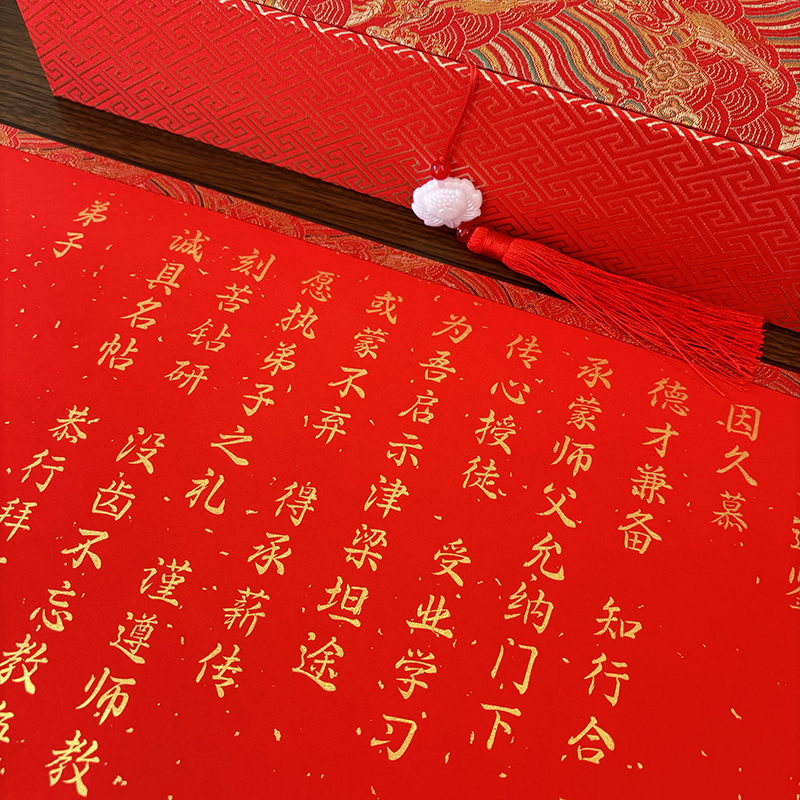 因久慕
德才兼备 知行合
承蒙师父允纳门下
传心授徒 受业学习
为吾启示津梁坦途
或蒙不弃 得承薪传
愿执弟子之礼 谨遵师教
刻苦钻研 没齿不忘教
诚具名帖 恭行拜
弟子